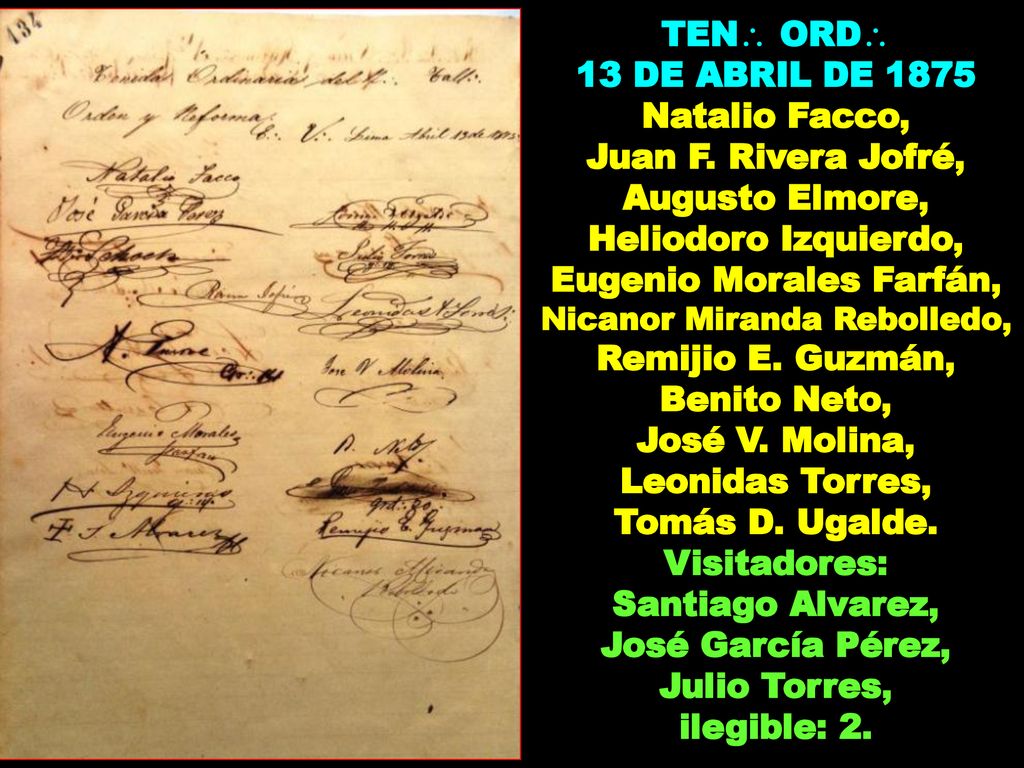 134
Tenida Ordinaria del R∴ Tall∴
Orden y Reforma.
E∴ V∴ Lima Abril 13 de 1875.
Natalio Facco
José García Perez
Julio Torres
Leonidas Torres
José V. Molina
Eugenio Morales
Farfan
B. Neto
H. Izquierdo
grd∴ 80
F. S. Alvarez
Remigio E. Guzman
Nicanor Miranda
Rebolledo
TEN∴ ORD∴
13 DE ABRIL DE 1875
Natalio Facco,
Juan F. Rivera Jofré,
Augusto Elmore,
Heliodoro Izquierdo,
Eugenio Morales Farfán,
Nicanor Miranda Rebolledo,
Remijio E. Guzmán,
Benito Neto,
José V. Molina,
Leonidas Torres,
Tomás D. Ugalde.
Visitadores:
Santiago Alvarez,
José García Pérez,
Julio Torres,
ilegible: 2.